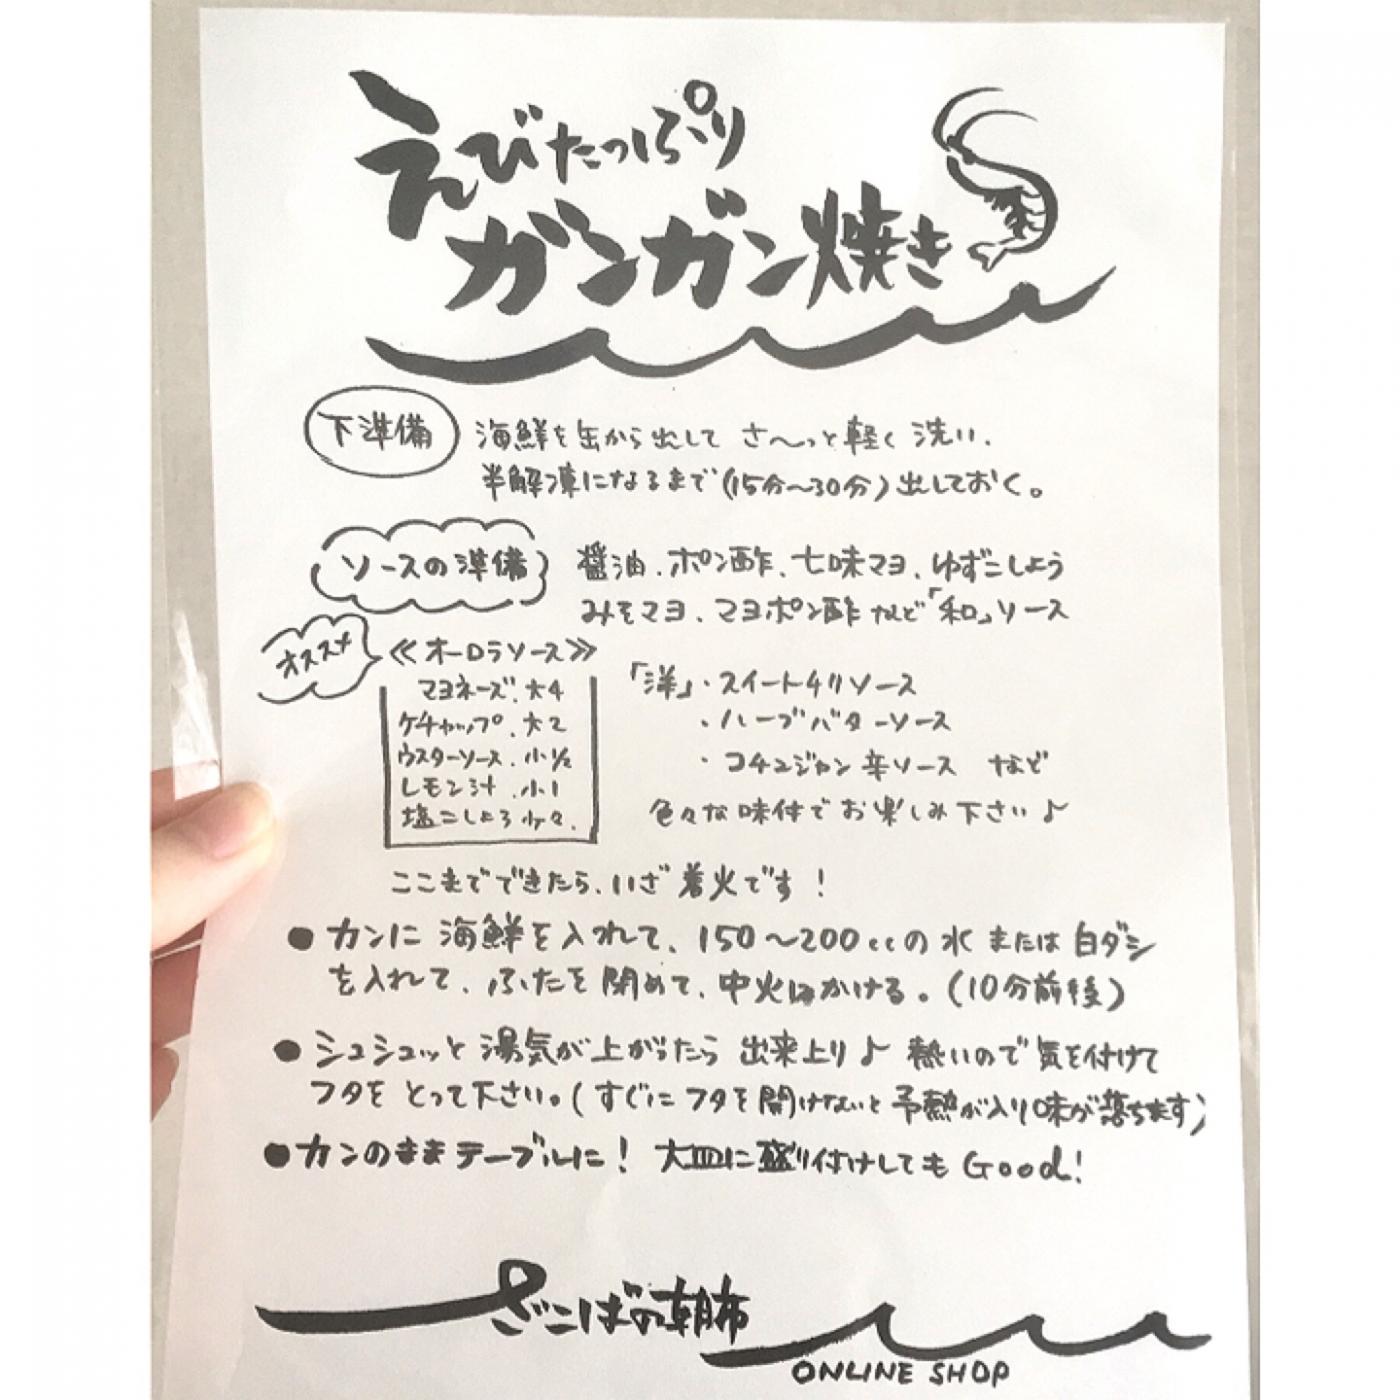 えびたっぷり
ガンガン焼き
下準備
海鮮を缶から出して さ〜っと軽く洗い、
半解凍になるまで(15分〜30分)出しておく。
ソースの準備
醤油、ポン酢、七味マヨ、ゆずこしょう
みそマヨ、マヨポン酢など「和」ソース
オススメ
≪オーロラソース≫
マヨネーズ、大4
ケチャップ、大2
ウスターソース、小1/2
レモン汁、小1
塩こしょう少々、
「洋」・スイートチリソース
・ハーブバターソース
・コチュジャン辛ソース など
色々な味付でお楽しみ下さい♪
ここまでできたら、いざ着火です!
●カンに海鮮を入れて、150〜200ccの水または白ダシ
を入れて、ふたを閉めて、中火にかける。(10分前後)
●シュシュッと湯気が上がったら出来上り♪ 熱いので気を付けて
フタをとって下さい。(すぐにフタを開けないと予熱が入り味が落ちます)
●カンのままテーブルに! 大皿に盛り付けしてもGood!
ざこばの朝市
ONLINE SHOP